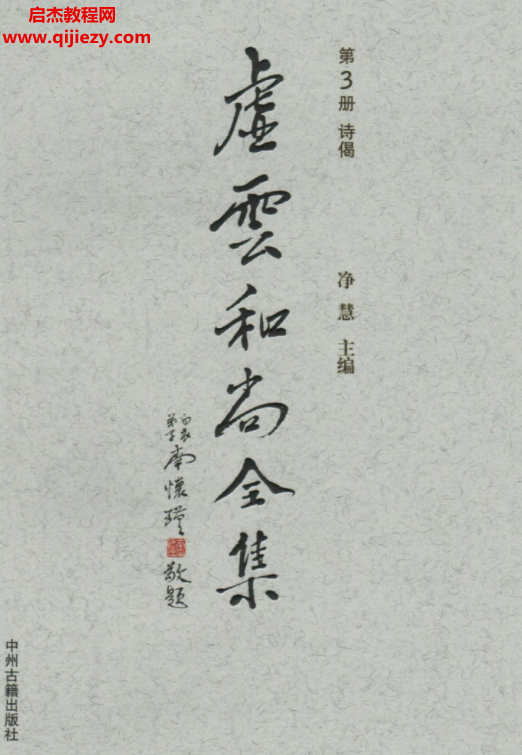 启杰教程网
www.qijiezy.com
第3册 诗偈
净慧 主编
虚雲和尚全集
白衣
弟子
南懷瑾
敬題
中州古籍出版社